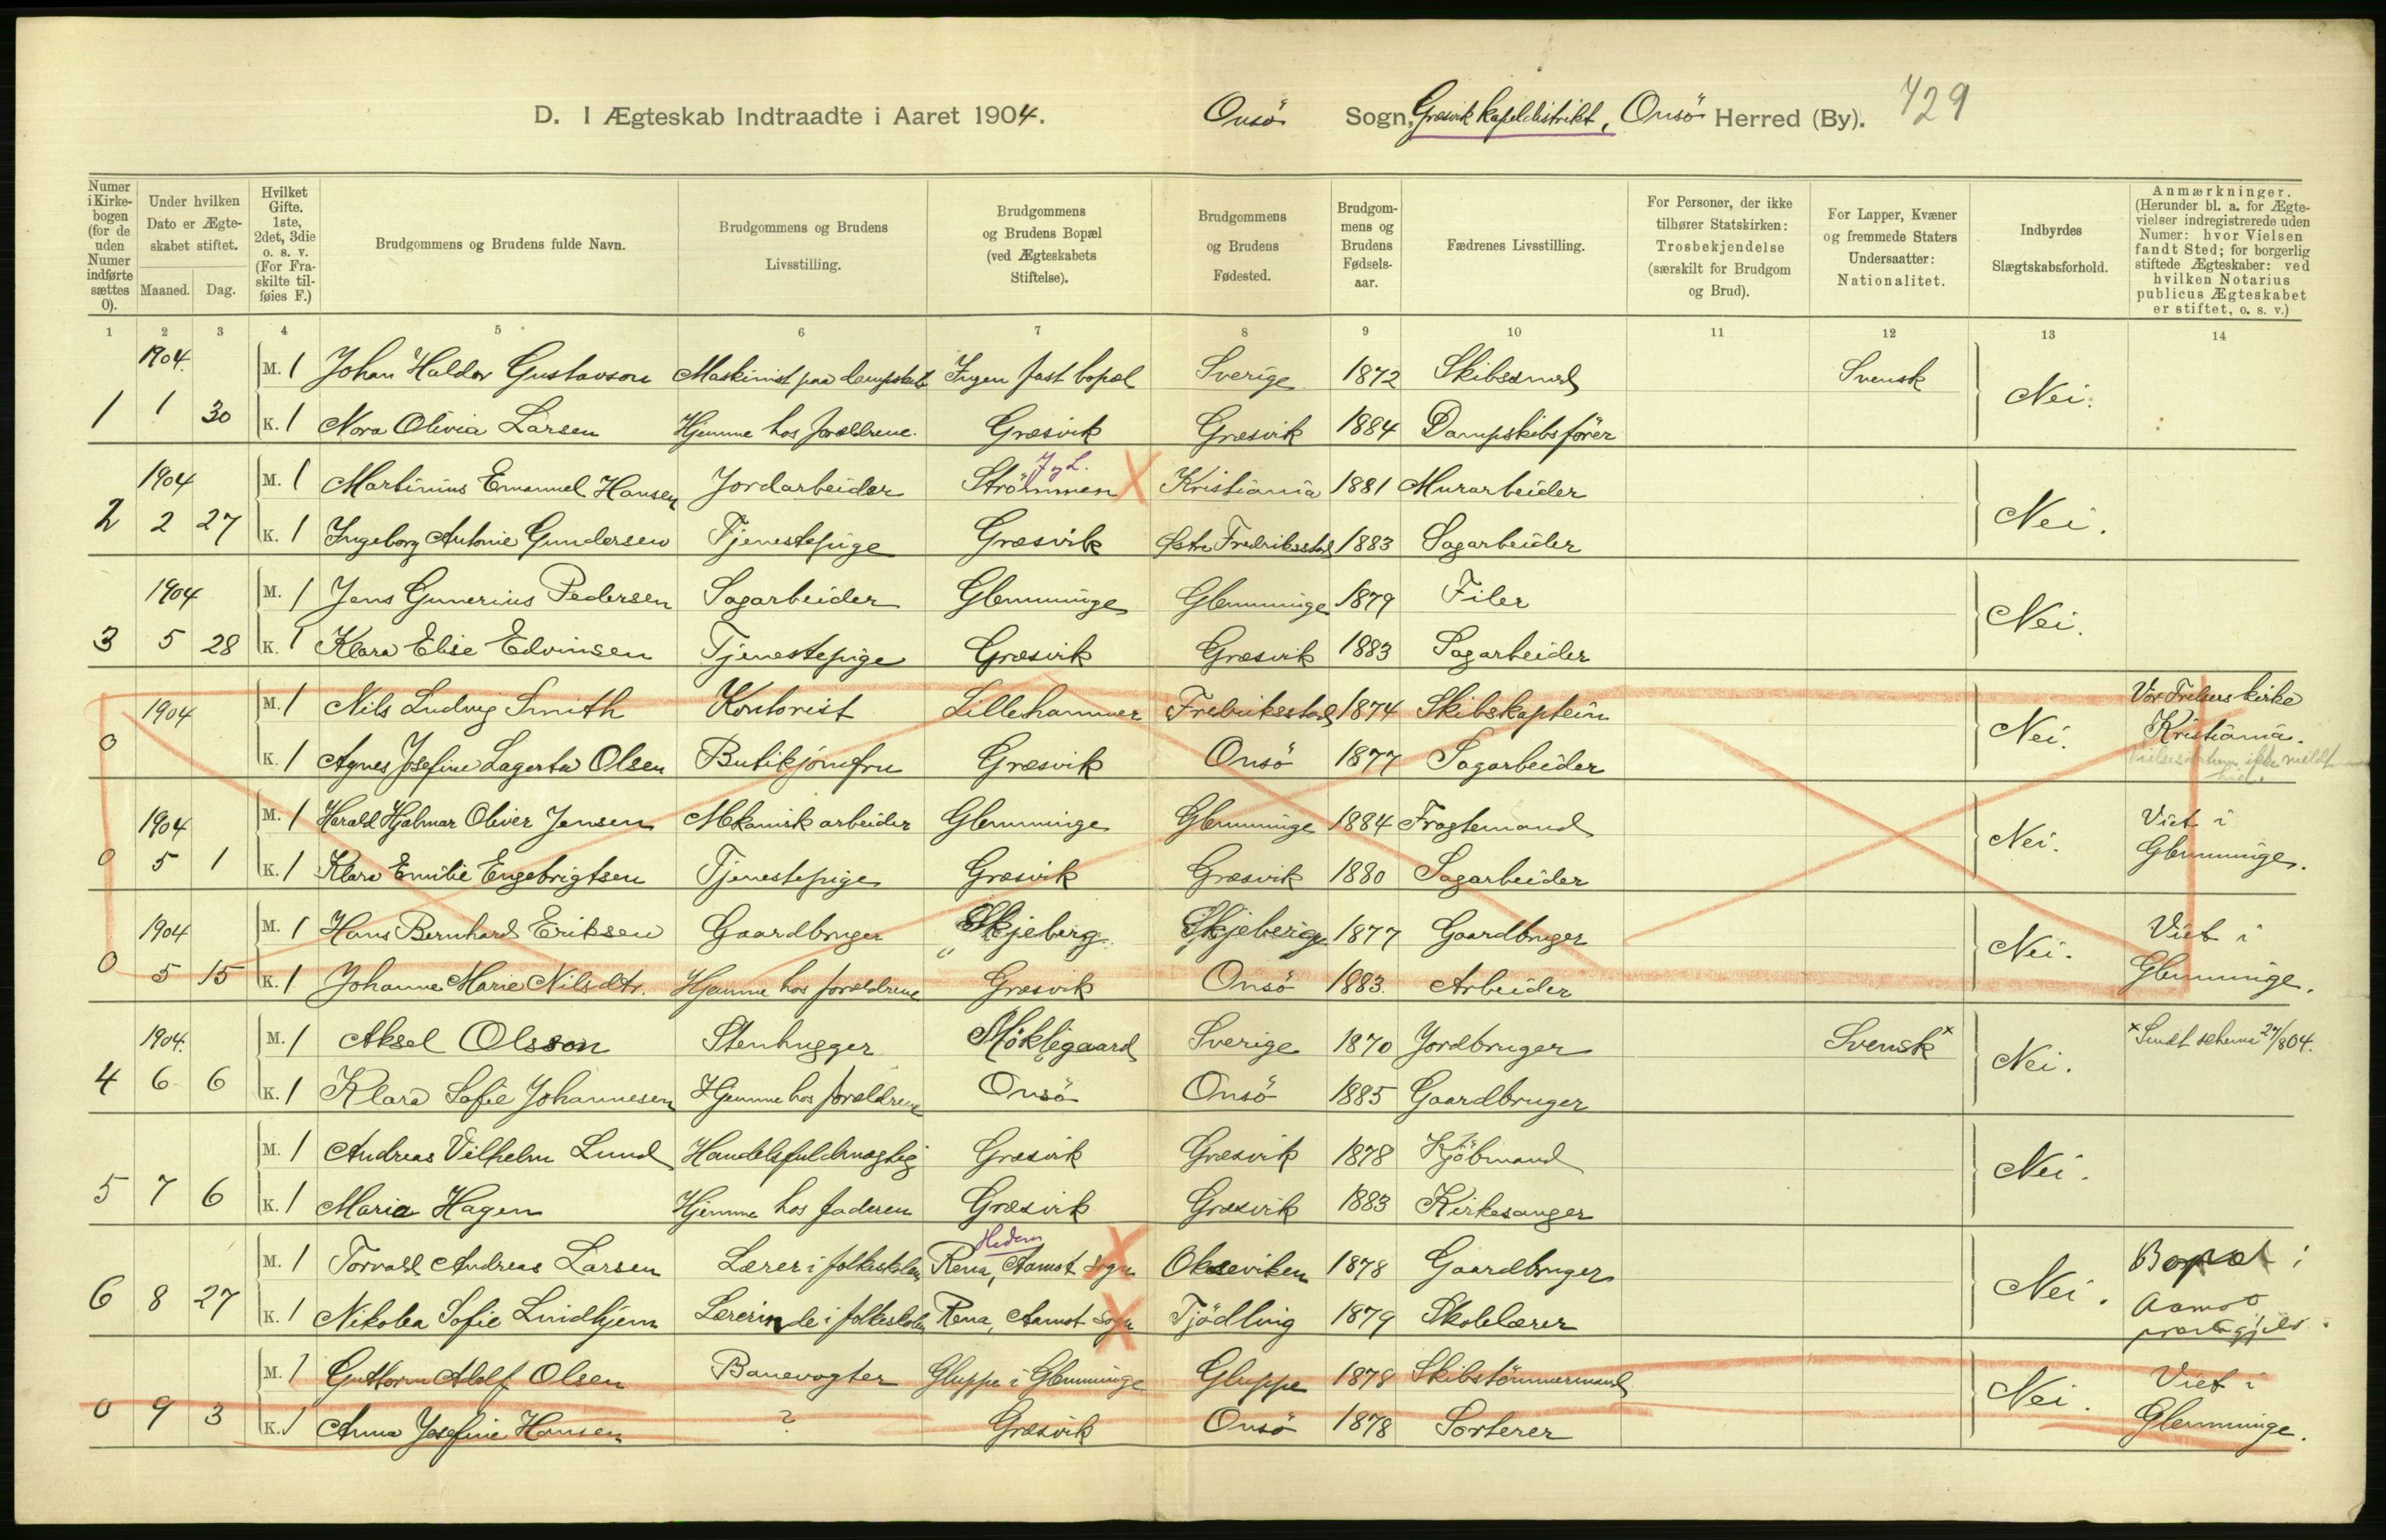 D. I Ægteskab Indtraadte i Aaret 1904. Onsö Sogn, Græsvik kapeldistrikt, Onsö Herred (By). 729
Numer i Kirkebogen (for de uden Numer indførte sættes 0). Under hvilken Dato er Ægteskabet stiftet. Maaned. Dag. Hvilket Gifte. 1ste, 2det, 3die o. s. v. (For Fraskilte tilføies F.) Brudgommens og Brudens fulde Navn. Brudgommens og Brudens Livsstilling. Brudgommens og Brudens Bopæl (ved Ægteskabets Stiftelse). Brudgommens og Brudens Fødested. Brudgommens og Brudens Fødselsaar. Fædrenes Livsstilling. For Personer, der ikke tilhører Statskirken: Trosbekjendelse (særskilt for Brudgom og Brud). For Lapper, Kvæner og fremmede Staters Undersaatter: Nationalitet. Indbyrdes Slægtskabsforhold. Anmærkninger. (Herunder bl. a. for Ægtevielser indregistrerede uden Numer: hvor Vielsen fandt Sted; for borgerlig stiftede Ægteskaber: ved hvilken Notarius publicus Ægteskabet er stiftet, o. s. v.)
1 2 3 4 5 6 7 8 9 10 11 12 13 14
1904. M. 1 Johan Haldor Gustavson Maskinist paa dampskib Ingen fast bopæl Sverige 1872 Skibssmed Svensk Nei.
1 1 30 K. 1 Nora Olivia Larsen Hjemme hos forældrene. Græsvik Græsvik 1884 Dampskibsförer
1904 M. 1 Martinius Emanuel Hansen Jordarbeider Strömmen Kristiania 1881 Murarbeider Nei.
2 2 27 K. 1 Ingeborg Antonie Gundersen Tjenestepige Græsvik Østre Fredriksstad 1883 Sagarbeider
1904 M. 1 Jens Gunerius Pedersen Sagarbeider Glemminge Glemminge 1879 Filer Nei.
3 5 28 K. 1 Klara Elise Edvinsen Tjenestepige Græsvik Græsvik 1883 Sagarbeider
1904 M. 1 Nils Ludvig Smith Kontorist Lillehammer Fredriksstad 1874 Skibskaptein Nei. Vor Frelsers kirke
0 K. 1 Agnes Josefine Lagerta Olsen Butikjomfru Græsvik Onsö 1877 Sagarbeider Kristiania.
1904 M. 1 Harald Hjalmar Oliver Jensen Mekanisk arbeider Glemminge Glemminge 1884 Fragtemand Nei. Viet i
0 5 1 K. 1 Klara Emilie Engebrigtsen Tjenestepige Græsvik Græsvik 1880 Sagarbeider Glemminge.
1904 M. 1 Hans Bernhard Eriksen Gaardbruger Skjeberg Skjeberg 1877 Gaardbruger Nei. Viet i
0 5 15 K. 1 Johanne Marie Nilsdtr. Hjemme hos forældrene Græsvik Onsö 1883. Arbeider Glemminge.
1904. M. 1 Aksel Olsson Stenhugger Möklegaard Sverige 1870 Jordbruger Svensk x Nei. x Sendt schema 27/8 04.
4 6 6 K. 1 Klara Sofie Johannesen Hjemme hos forældrene Onsö Onsö 1885 Gaardbruger
M. 1 Andreas Vilhelm Lund Handelsfuldmægtig Græsvik Græsvik 1878 Kjöbmand Nei.
5 7 6 K. 1 Maria Hagen Hjemme hos faderen Græsvik Græsvik 1883 Kirkesanger
Hedem
M. 1 Torvald Andreas Larsen Lærer i folkeskolen Rena, Aamot Sogn Okseviken 1878 Gaardbruger Nei. Bopæl i
6 8 27 K. 1 Nikolea Sofie Lindhjem Lærerinde i folkeskolen Rena, Aamot Sogn Tjödling 1879 Skolelærer Aamot præstegjeld.
M. 1 Guttorm Adolf Olsen Banevogter Gluppe i Glemminge Gluppe 1878 Skibstömmermand Nei. Viet i
0 9 3 K. 1 Anna Josefine Hansen ? Græsvik Onsö 1878 Sorterer Glemminge.